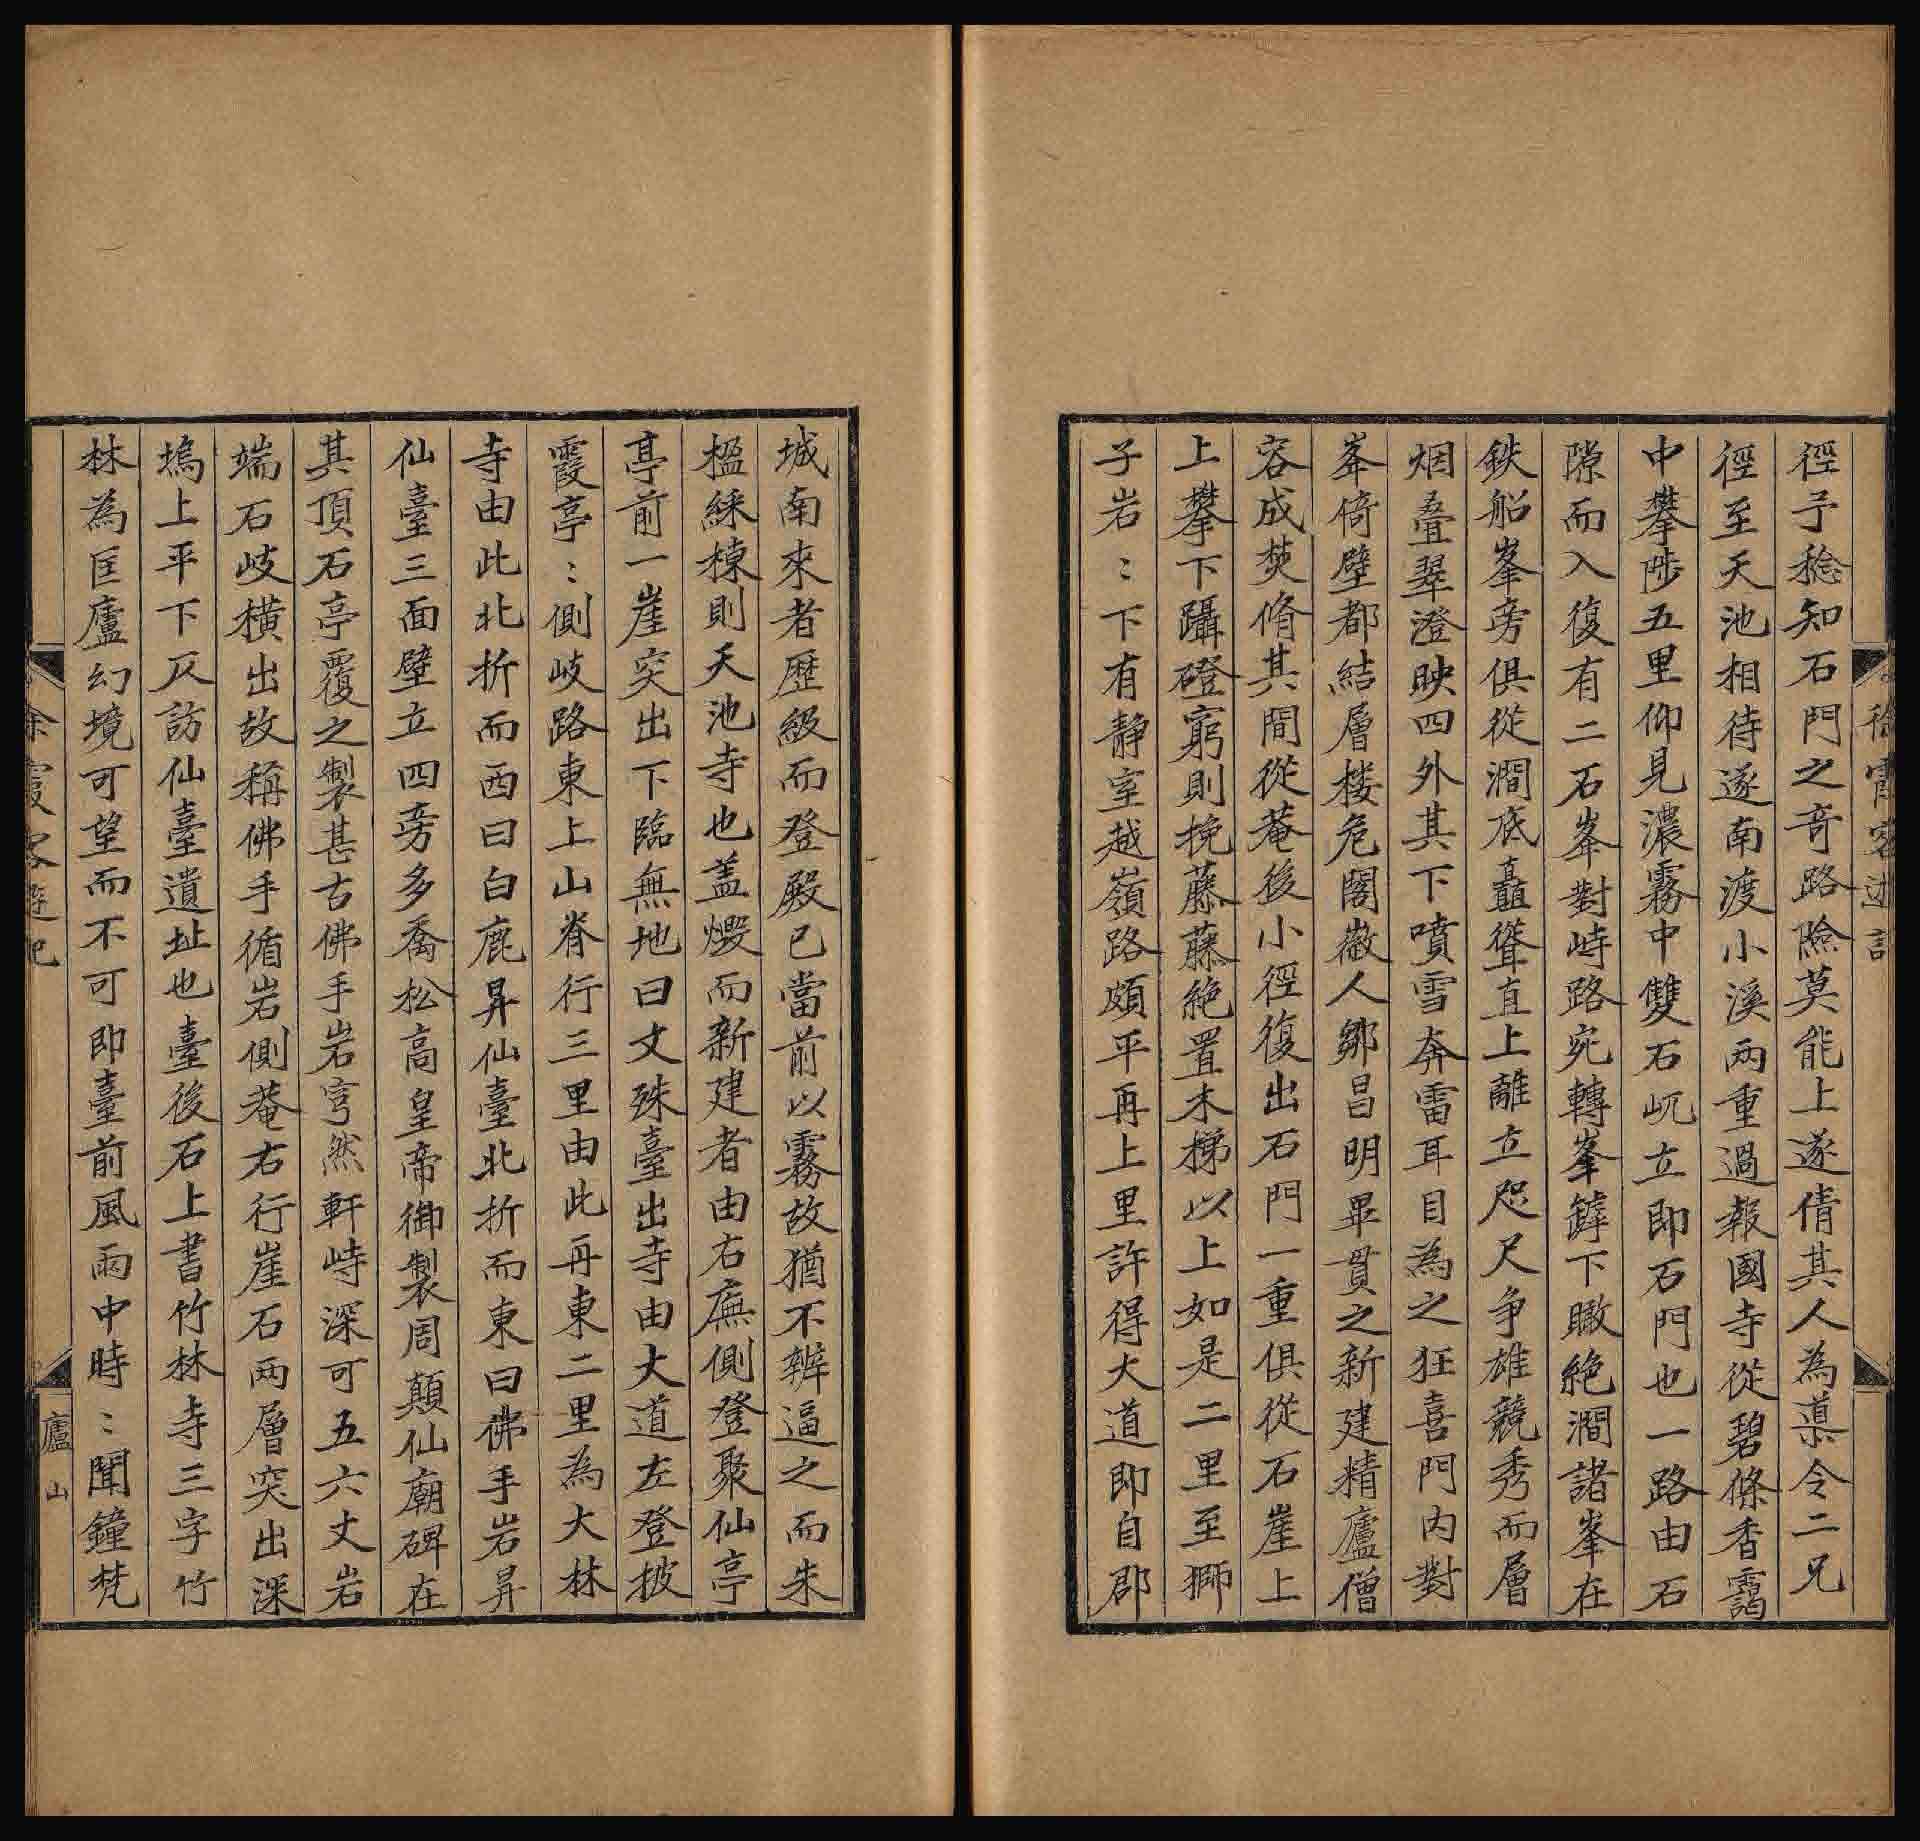 徑予稔知石門之奇路險莫能上遂倩其人為導令二兄
徑至天池相待遂南渡小溪兩重過報國寺從碧條香靄
中攀陟五里仰見濃霧中雙石屼立即石門也一路由石
隙而入復有二石峯對峙路宛轉峯罅下瞰絶澗諸峯在
鉄船峯旁俱從澗底矗聳直上離立咫尺争雄競秀而層
烟叠翠澄映四外其下噴雪奔雷耳目為之狂喜門内對
峯倚壁都結層楼危閣徽人鄒昌明畢貫之新建精廬僧
容成焚脩其間從菴後小徑復出石門一重俱從石崖上
上攀下躡磴窮則挽藤藤絶置木梯以上如是二里至獅
子岩〻下有静室越嶺路頗平再上里許得大道即自郡
城南來者歷級而登殿已當前以霧故猶不辨逼之而朱
楹綵棟則天池寺也盖燬而新建者由右廡側登聚仙亭
亭前一崖突出下臨無地曰文殊臺出寺由大道左登披
霞亭〻側岐路東上山脊行三里由此再東二里為大林
寺由此北折而西曰白鹿昇仙臺北折而東曰佛手岩昇
仙臺三面壁立四旁多喬松高皇帝御製周顛仙廟碑在
其頂石亭覆之製甚古佛手岩穹然軒峙深可五六丈岩
端石岐横出故稱佛手循岩側菴右行崖石两層突出深
塢上平下仄訪仙臺遺址也臺後石上書竹林寺三字竹
林為匡廬幻境可望而不可即臺前風雨中時〻聞鐘梵
廬山